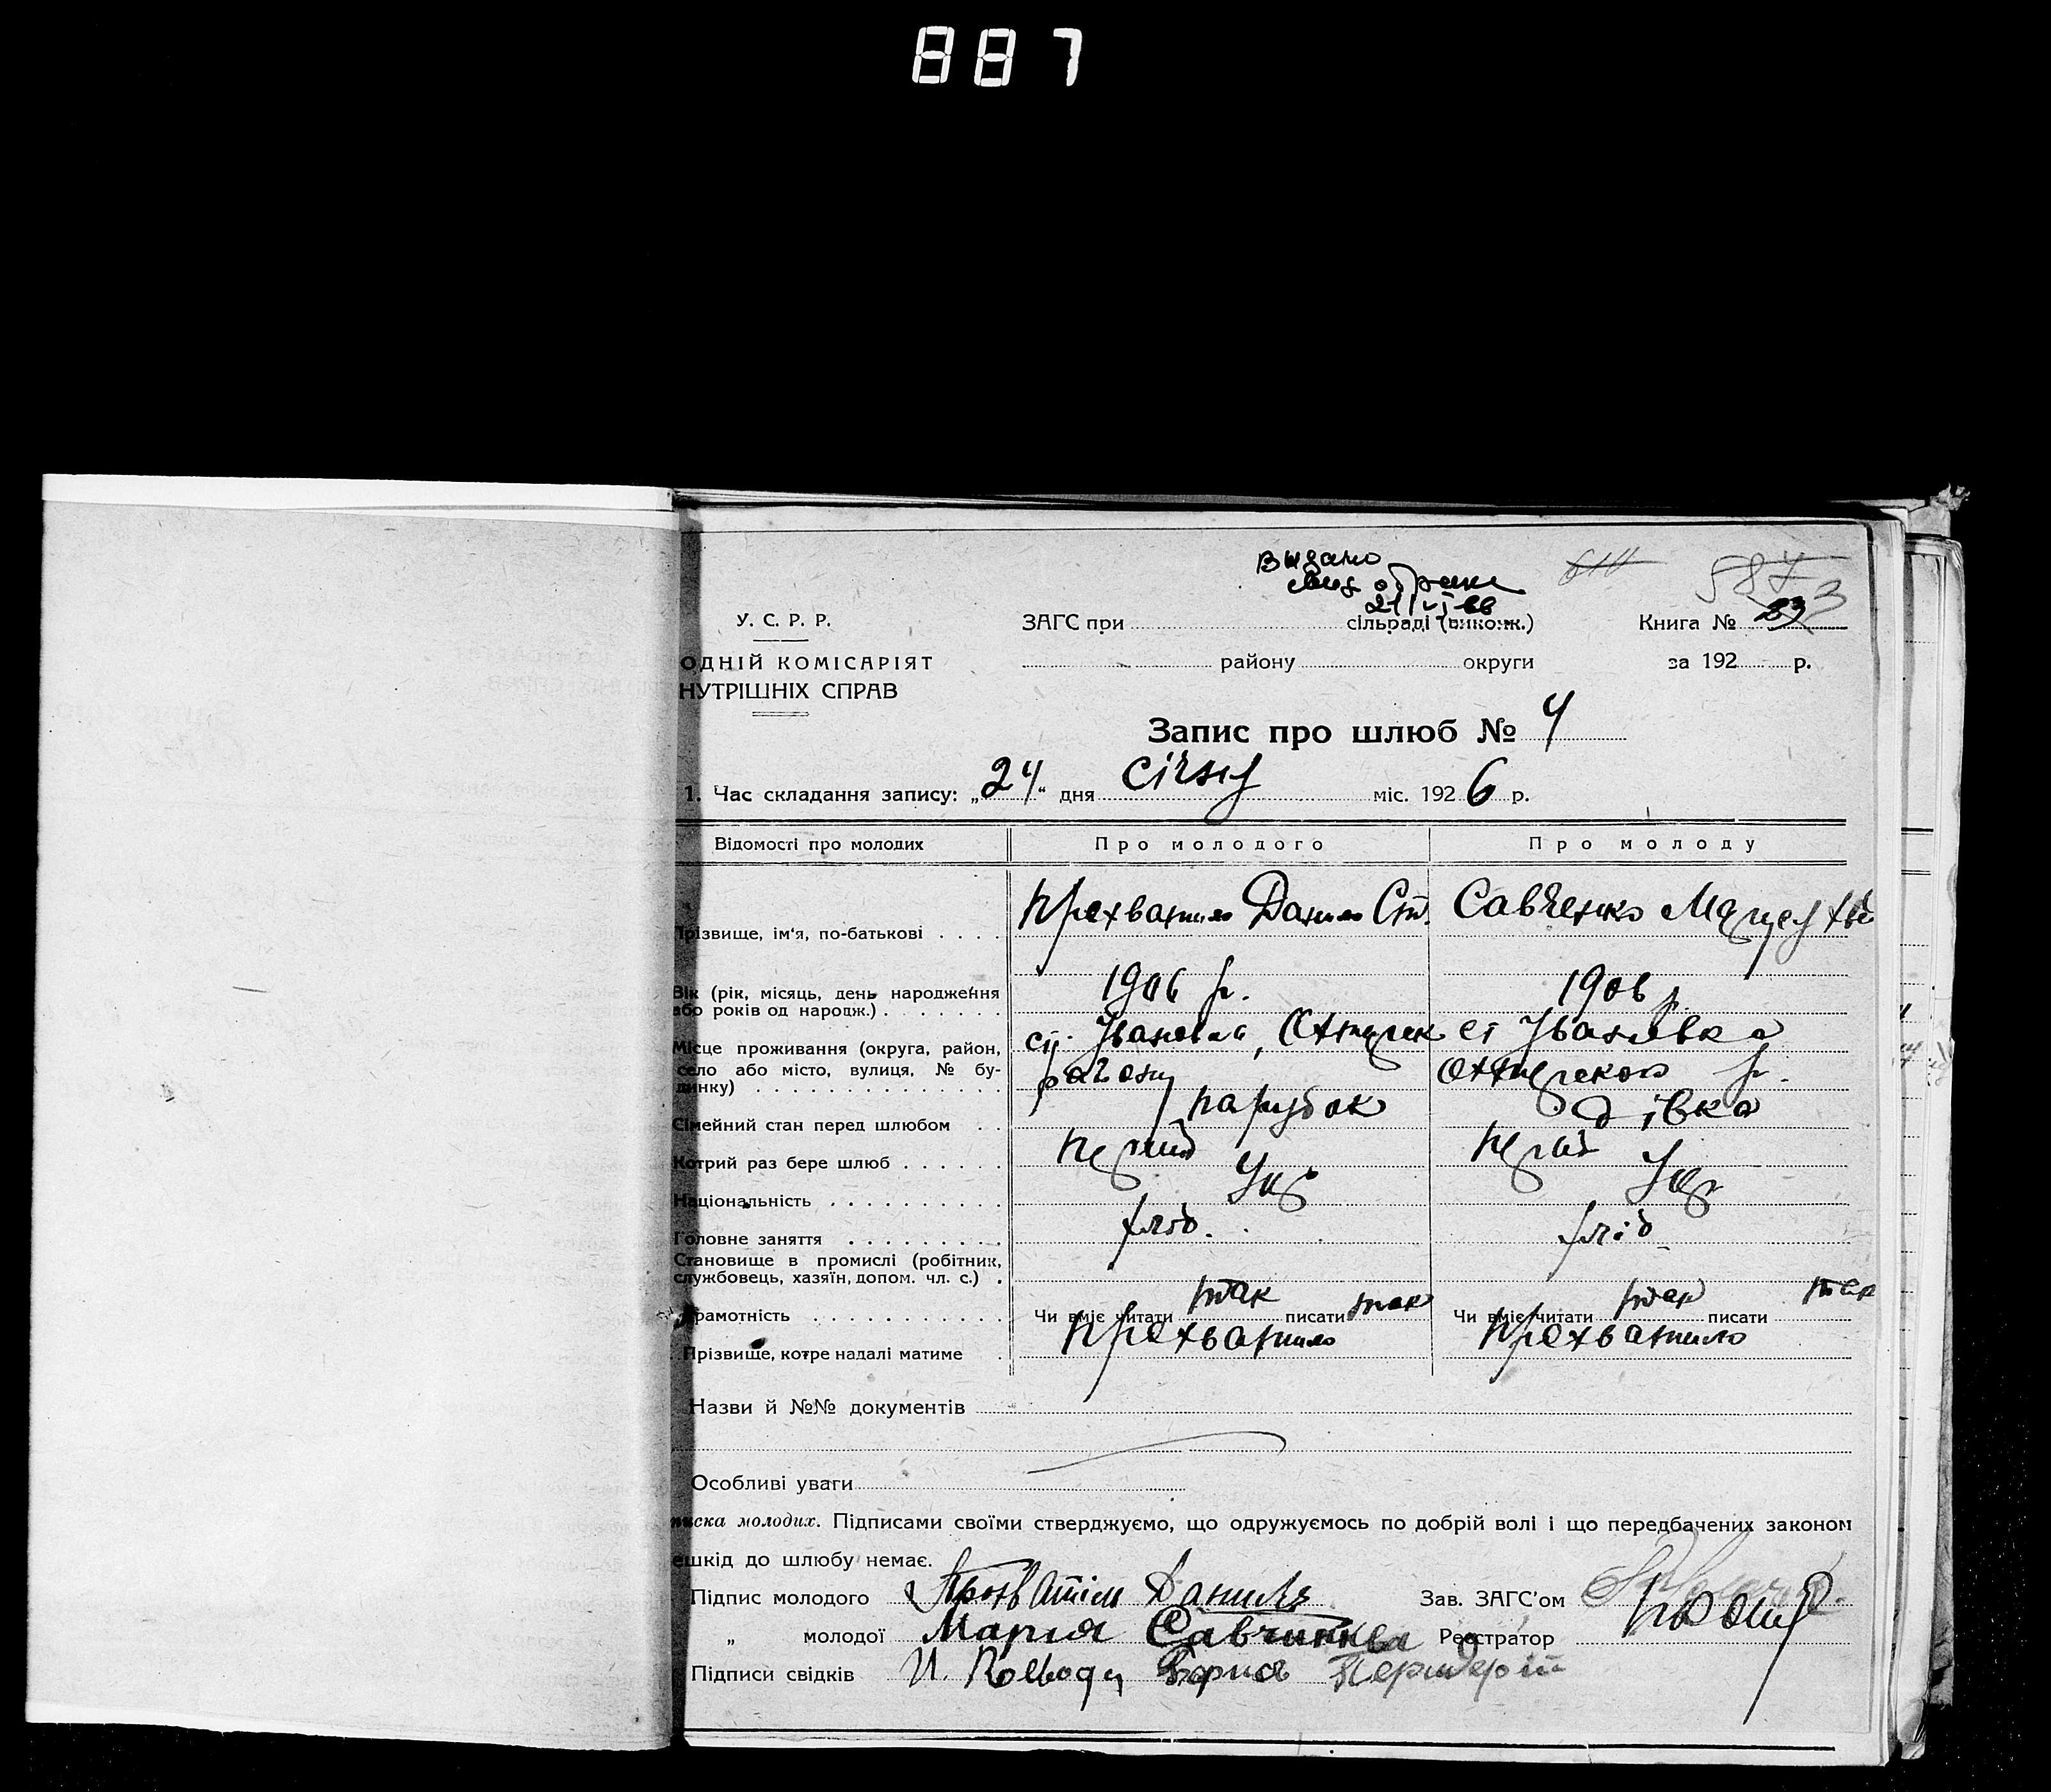 887
Видано
21/VI 66
587
3
У. С. Р. Р.
ЗАГС при сільраді (викон.к.) Книга № 23
ОДНІЙ КОМІСАРІЯТ
району округи за 192 р.
НУТРІШНІХ СПРАВ
Запис про шлюб № 4
1. Час складання запису: „24“ дня січня міс. 1926 р.
Відомості про молодих Про молодого Про молоду
Прізвище, ім'я, по-батькові . . . . Прохватило Данило Ст. Савченко
Вік (рік, місяць, день народження 1906 р. 1906 р.
або років од народж.) . . . . . . .
Місце проживання (округа, район, Охтирск Іванівка
село або місто, вулиця, № бу- району Охтирского р.
динку) . . . . . . . . . . . . .
Сімейний стан перед шлюбом . . парубок дівка
Котрий раз бере шлюб . . . . . . перший перший
Національність . . . . . . . . . . Укр Укр
Головне заняття . . . . . . . . . хліб. хліб
Становище в промислі (робітник,
службовець, хазяїн, допом. чл. с.) .
Грамотність . . . . . . . . . . . Чи вміє читати так писати так Чи вміє читати так писати так
Прізвище, котре надалі матиме . Прохватило Прохватило
Назви й №№ документів
Особливі уваги
писка молодих. Підписами своїми стверджуємо, що одружуємось по добрій волі і що передбачених законом
ешкід до шлюбу немає.
Підпис молодого Данило Зав. ЗАГС'ом
„ молодої Мария Реєстратор
Підписи свідків